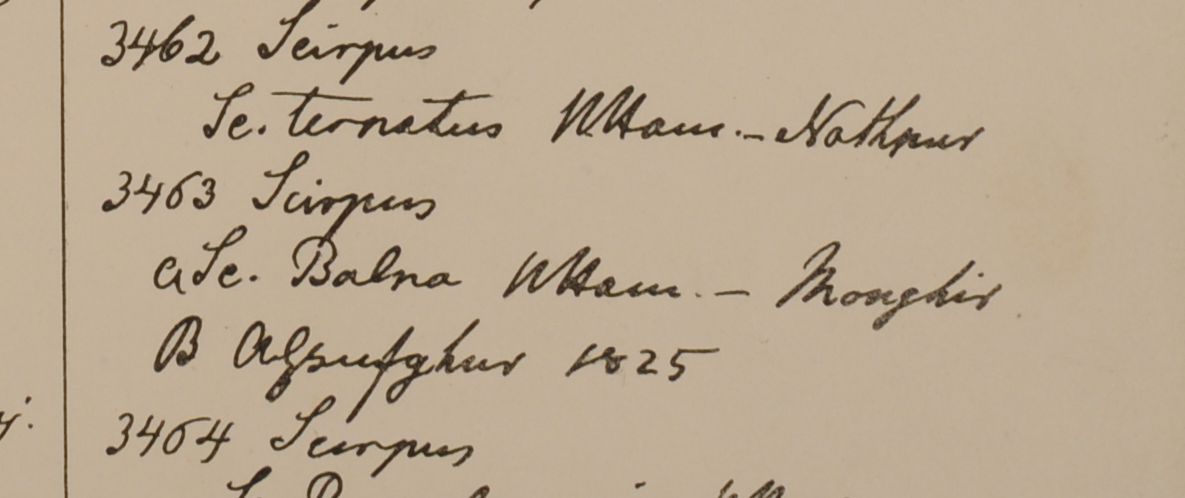 3462 Scirpus
Sc. ternatus HHam. – Nathpur
3463 Scirpus
a Sc. Balna HHam. – Monghir
B 1825
3464 Scirpus
Sc.